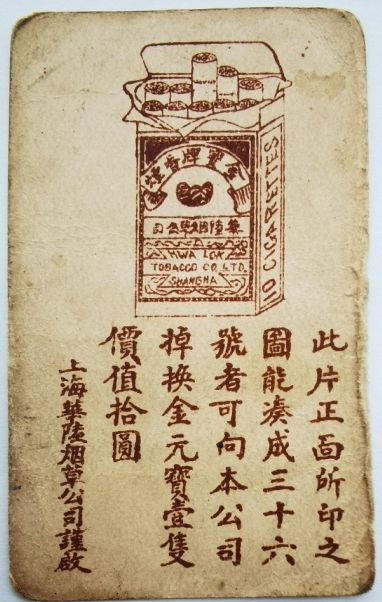 金寶牌香煙
華陸烟草公司
HWA LOK
TOBACCO CO. LTD.
SHANGHA
10 CIGARETTES
此片正面所印之
圖能凑成三十六
號者可向本公司
掉換金元寶壹隻
價值拾圓
上海華陸烟草公司謹啟